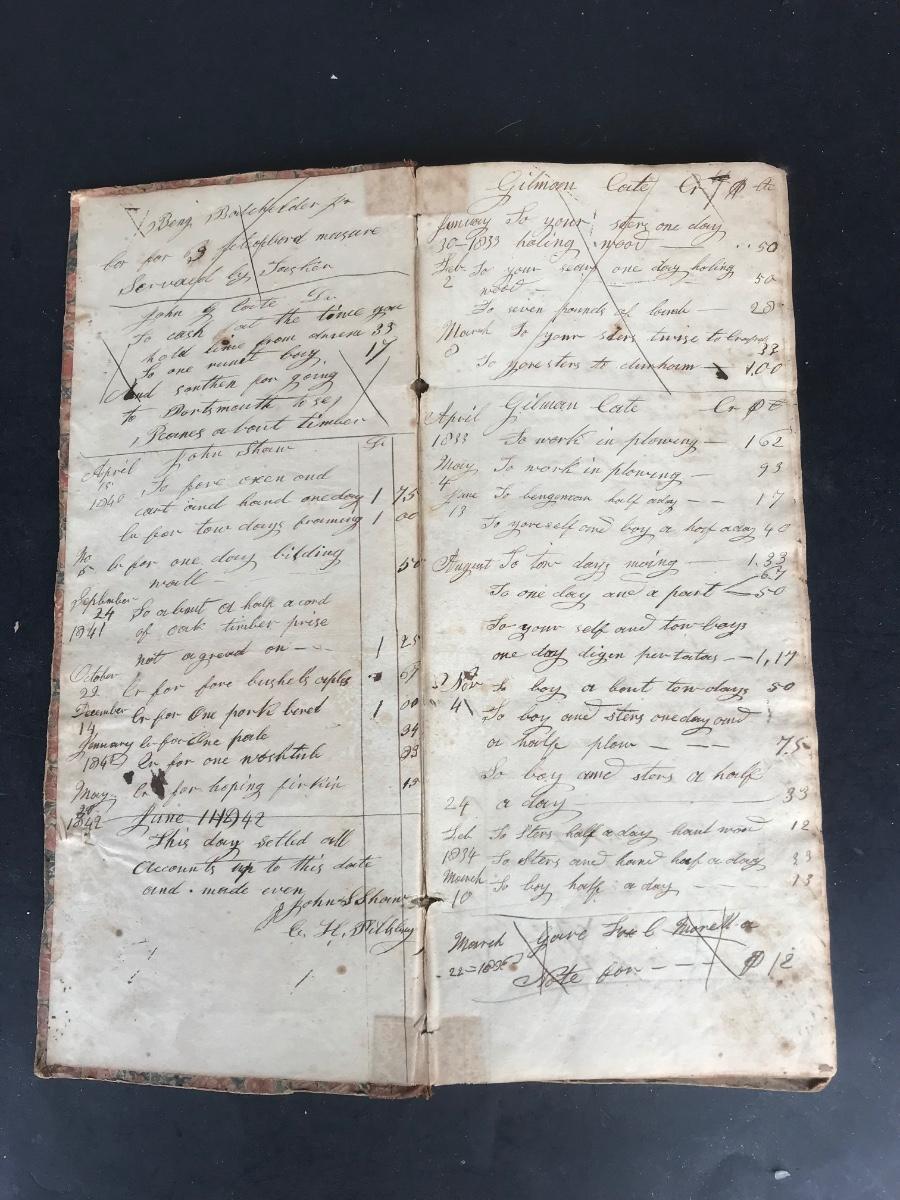 Benj Batchelder Jr
for
measure
Servaid by Tasker
John G Cate Dr
To cash at the time you
hold lime from durem 33
To one nunt boy. 17
And southen for going
to Portsmouth to se
Peanes about timber
April John Shaw Dr
15
1840 To fore oxen and
cart and hand one day 1 75
Cr for tow days braming 1 00
No
5 Cr for one day bilding 50
wall —
September
24 To about a half a cord
1841 of oak timber prise
not agread on - - - 1 25
October
22 Cr for fore bushels aples
December
14 Cr for One pork barel 1 00
January Cr for One pale 34
1842 Cr for one woshtub
May Cr for hoping firkin 15
20
1842 June 1842
This day setled all
accounts up to this date
and made even
John S Shaw
C. H. Pillsbury
Gilman Cate Cr
January To your sters one day
30-1833 holing wood — 50
Feb To your one day holing
2 wood — 50
To seven pounds of — 28
March To your sters twise to
8 33
To yore sters to durhaim — 1.00
Gilman Cate Cr
April
1833 To work in plowing — 1 62
May To work in plowing — 93
4
June To bengeman half aday — 17
13
To yoreself and boy a half aday 40
August To tow days moing — 1.33
67
To one day and a part — 50
To your self and tow boys
one day digen pertatas — 1,17
2 Nov To boy a bout tow days 50
4 To boy and sters one day and
a half plow — - — 75
To boy and sters a half
24 a day — 33
Feb To Sters half a day haul wood 12
1834 To Sters and hand half a day 33
March To boy half a day — 13
10
March Gave C Morell a
22-
Note for — - - - $ 12